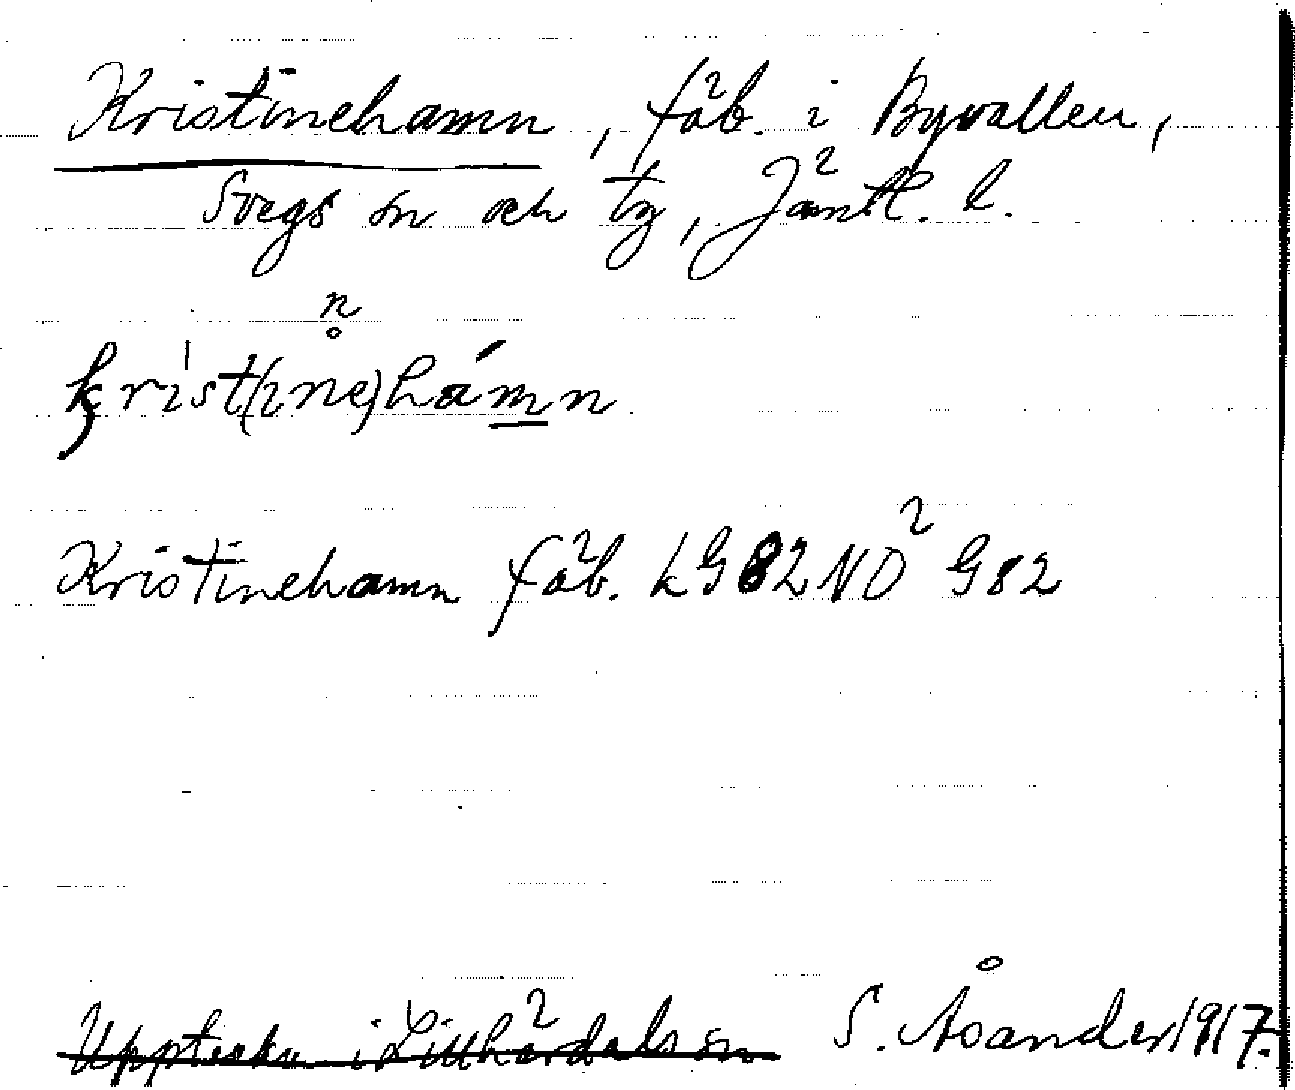 Kristinehamn, fäb. i Byvallen,
Svegs sn och tg, Jämtl. l.
n̥
krist(ine)hámn
Kristinehamn fäb. LG82NO² G82
Uppteckn i Lillhärdals sn S. Åsander 1917.